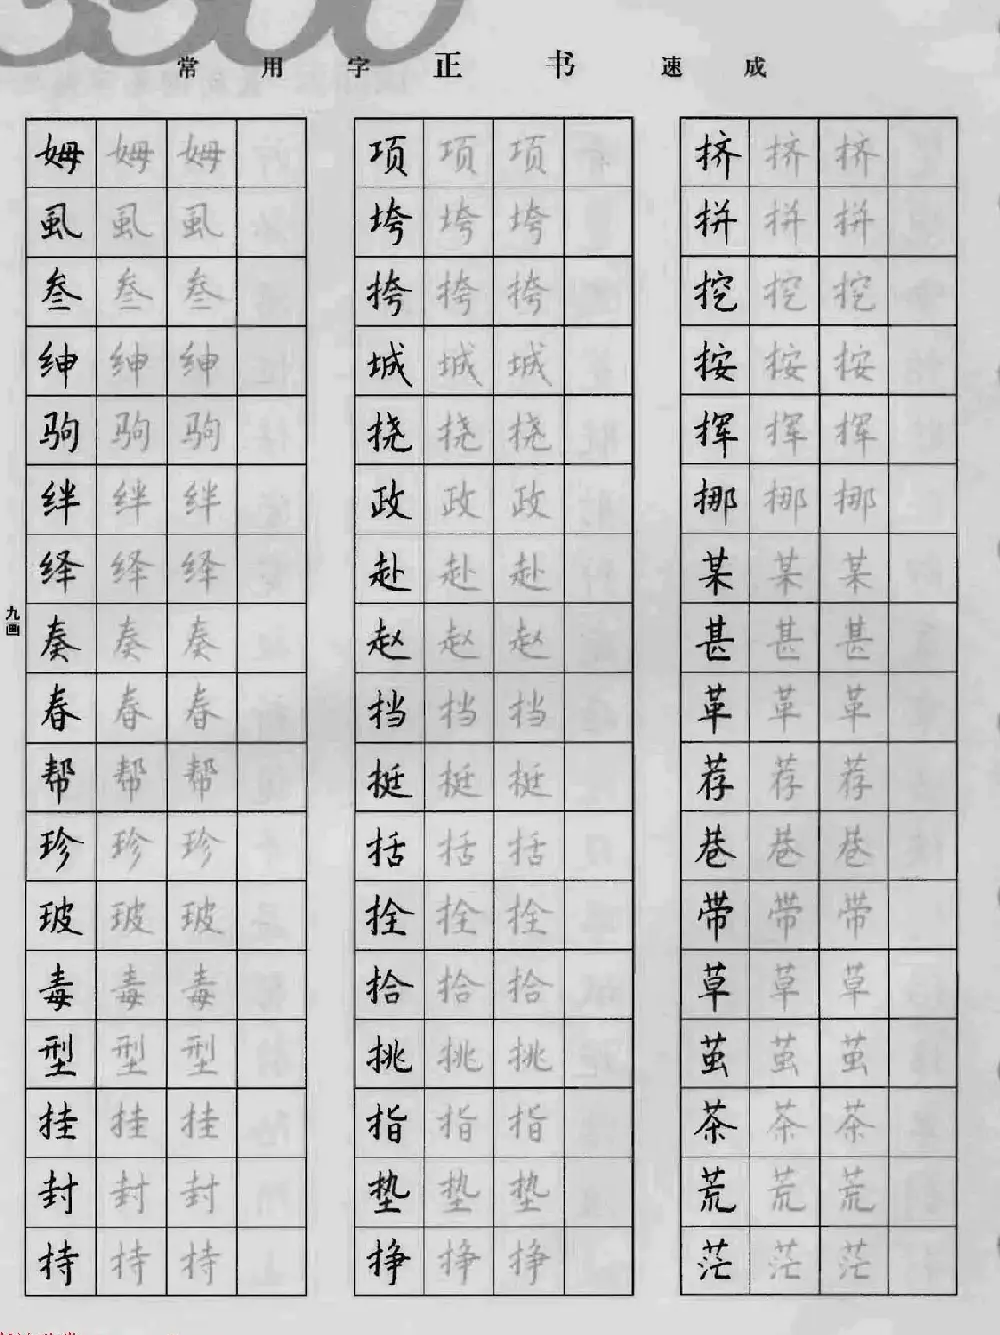 3500
常用字正书速成
九画
姆 姆 姆
虱 虱 虱
叁 叁 叁
绅 绅 绅
驹 驹 驹
绊 绊 绊
绎 绎 绎
奏 奏 奏
春 春 春
帮 帮 帮
珍 珍 珍
玻 玻 玻
毒 毒 毒
型 型 型
挂 挂 挂
封 封 封
持 持 持
项 项 项
垮 垮 垮
挎 挎 挎
城 城 城
挠 挠 挠
政 政 政
赴 赴 赴
赵 赵 赵
挡 挡 挡
挺 挺 挺
括 括 括
拴 拴 拴
拾 拾 拾
挑 挑 挑
指 指 指
垫 垫 垫
挣 挣 挣
挤 挤 挤
拼 拼 拼
挖 挖 挖
按 按 按
挥 挥 挥
挪 挪 挪
某 某 某
甚 甚 甚
革 革 革
荐 荐 荐
巷 巷 巷
带 带 带
草 草 草
茧 茧 茧
茶 茶 茶
荒 荒 荒
茫 茫 茫